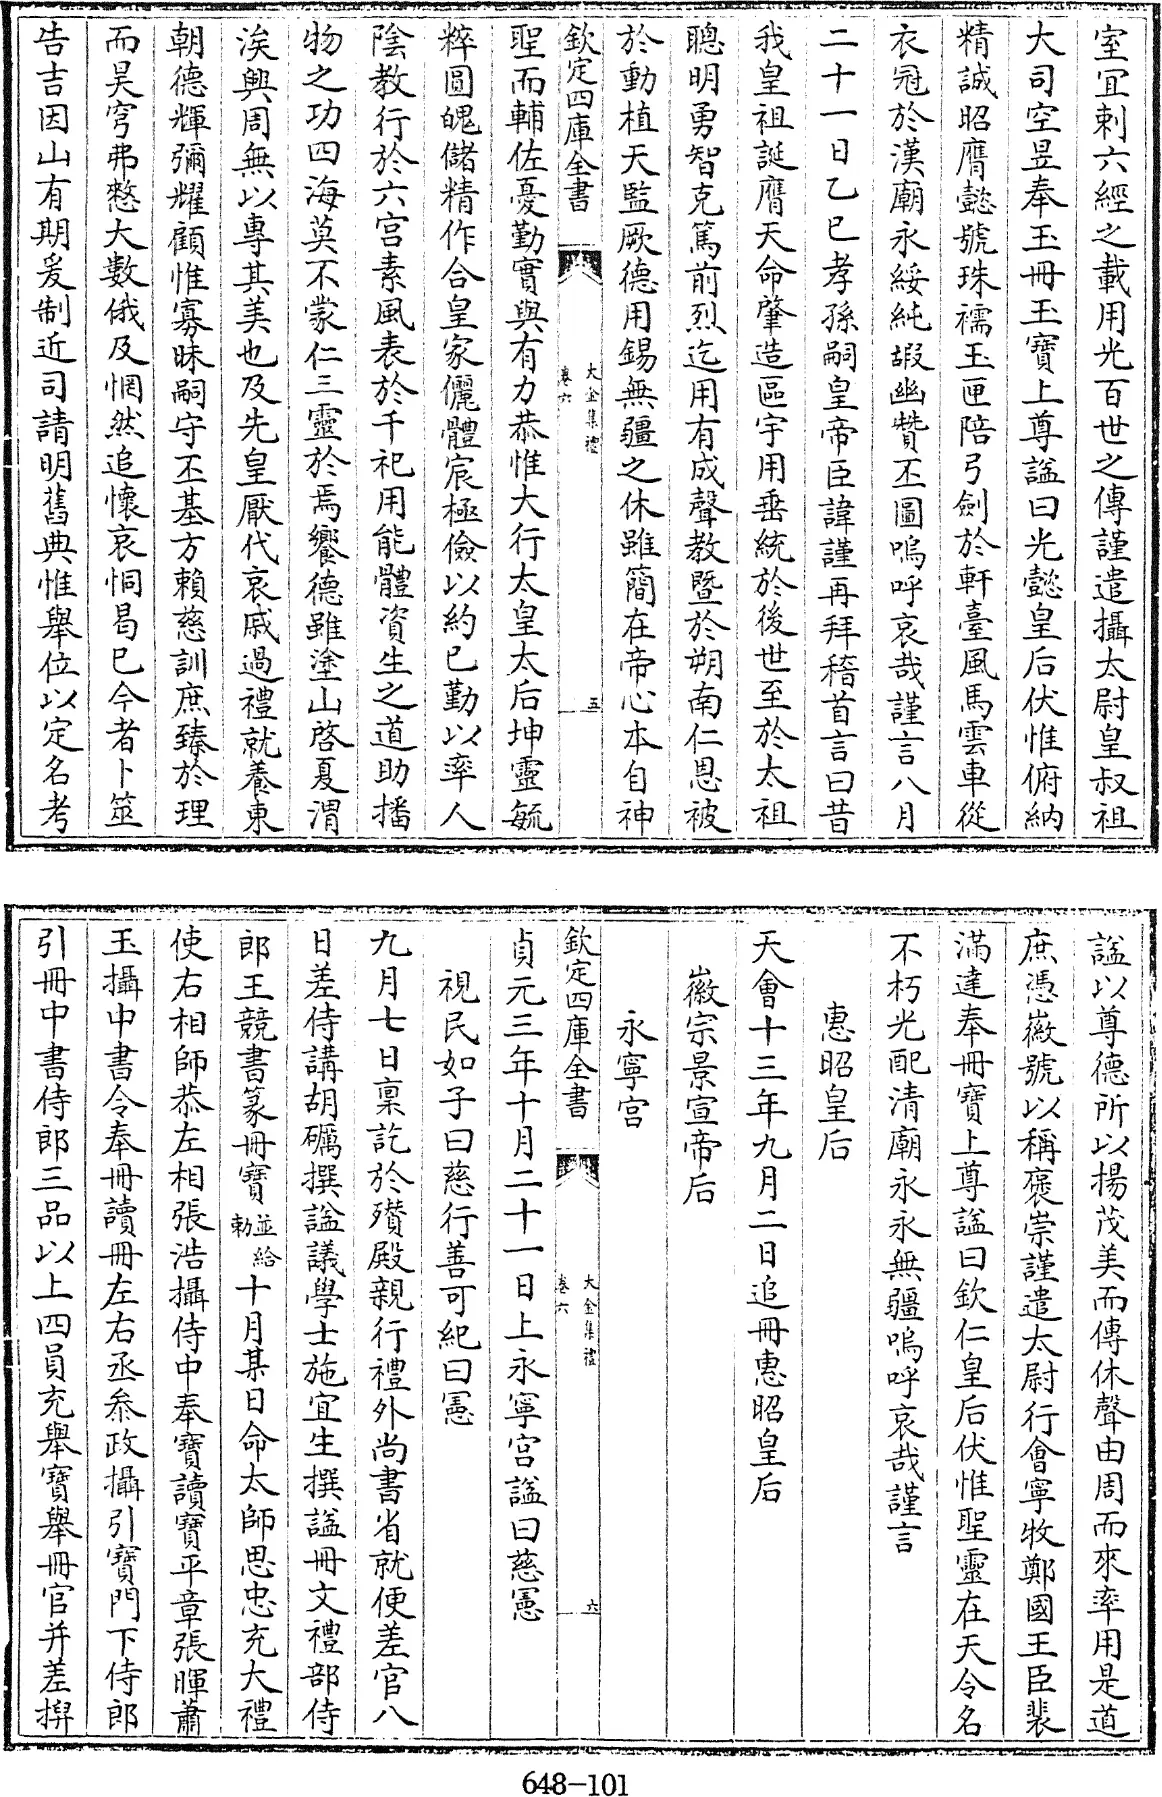 室宜刺六經之載用光百世之傳謹遣攝太尉皇叔祖
大司空昱奉玉冊玉寶上尊諡曰光懿皇后伏惟俯納
精誠昭膺懿號珠襦玉匣陪弓劍於軒臺風馬雲車從
衣冠於漢廟永綏純嘏幽贊丕圖嗚呼哀哉謹言八月
二十一日乙巳孝孫嗣皇帝臣諱謹再拜稽首言曰昔
我皇祖誕膺天命肇造區宇用垂統於後世至於太祖
聰明勇智克篤前烈迄用有成聲教暨於朔南仁恩被
於動植天監厥德用錫無疆之休雖簡在帝心本自神
欽定四庫全書
大金集禮
卷六
五
聖而輔佐憂勤實與有力恭惟大行太皇太后坤靈毓
粹圓魄儲精作合皇家儷體宸極儉以約己勤以率人
陰教行於六宮素風表於千祀用能體資生之道助播
物之功四海莫不蒙仁三靈於焉饗德雖塗山啓夏渭
涘興周無以專其美也及先皇厭代哀戚過禮就養東
朝德輝彌耀顧惟寡昧嗣守丕基方賴慈訓庶臻於理
而昊穹弗憖大數俄及惘然追懷哀恫曷已今者卜筮
告吉因山有期爰制近司請明舊典惟舉位以定名考
諡以尊德所以揚茂美而傳休聲由周而來率用是道
庶憑徽號以稱褒崇謹遣太尉行會寧牧鄭國王臣裴
滿達奉冊寶上尊諡曰欽仁皇后伏惟聖靈在天令名
不朽光配清廟永永無疆嗚呼哀哉謹言
惠昭皇后
天會十三年九月二日追冊惠昭皇后
徽宗景宣帝后
永寧宮
欽定四庫全書
大金集禮
卷六
六
貞元三年十月二十一日上永寧宮諡曰慈憲
視民如子曰慈行善可紀曰憲
九月七日稟訖於殯殿親行禮外尚書省就便差官八
日差侍講胡礪撰諡議學士施宜生撰諡冊文禮部侍
郎王競書篆冊寶並給勅十月某日命太師思忠充大禮
使右相師恭左相張浩攝侍中奉寶讀寶平章張暉蕭
玉攝中書令奉冊讀冊左右丞叅政攝引寶門下侍郎
引冊中書侍郎三品以上四員充舉寶舉冊官并差捧
648-101